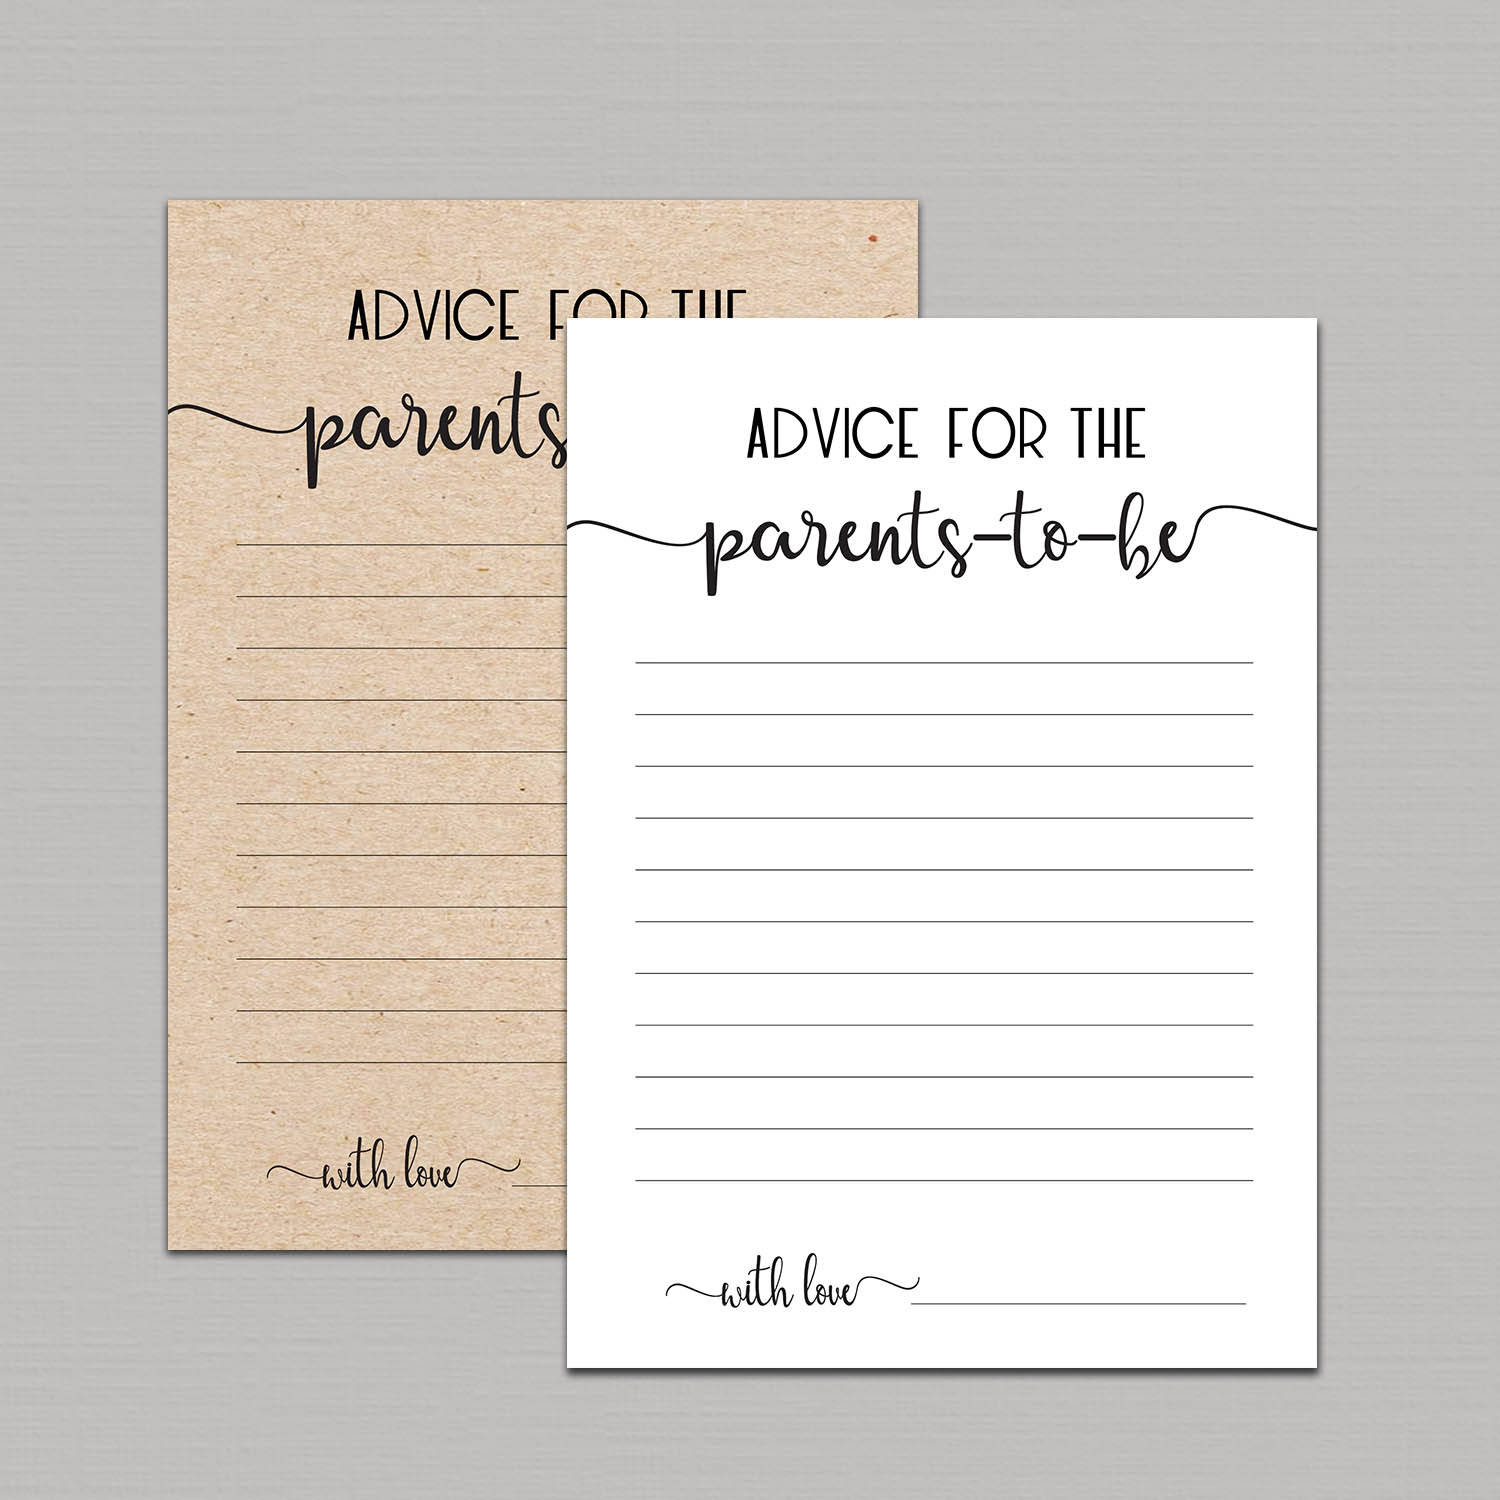 ADVICE FOR THE
parents
with love
ADVICE FOR THE
parents-to-be
with love